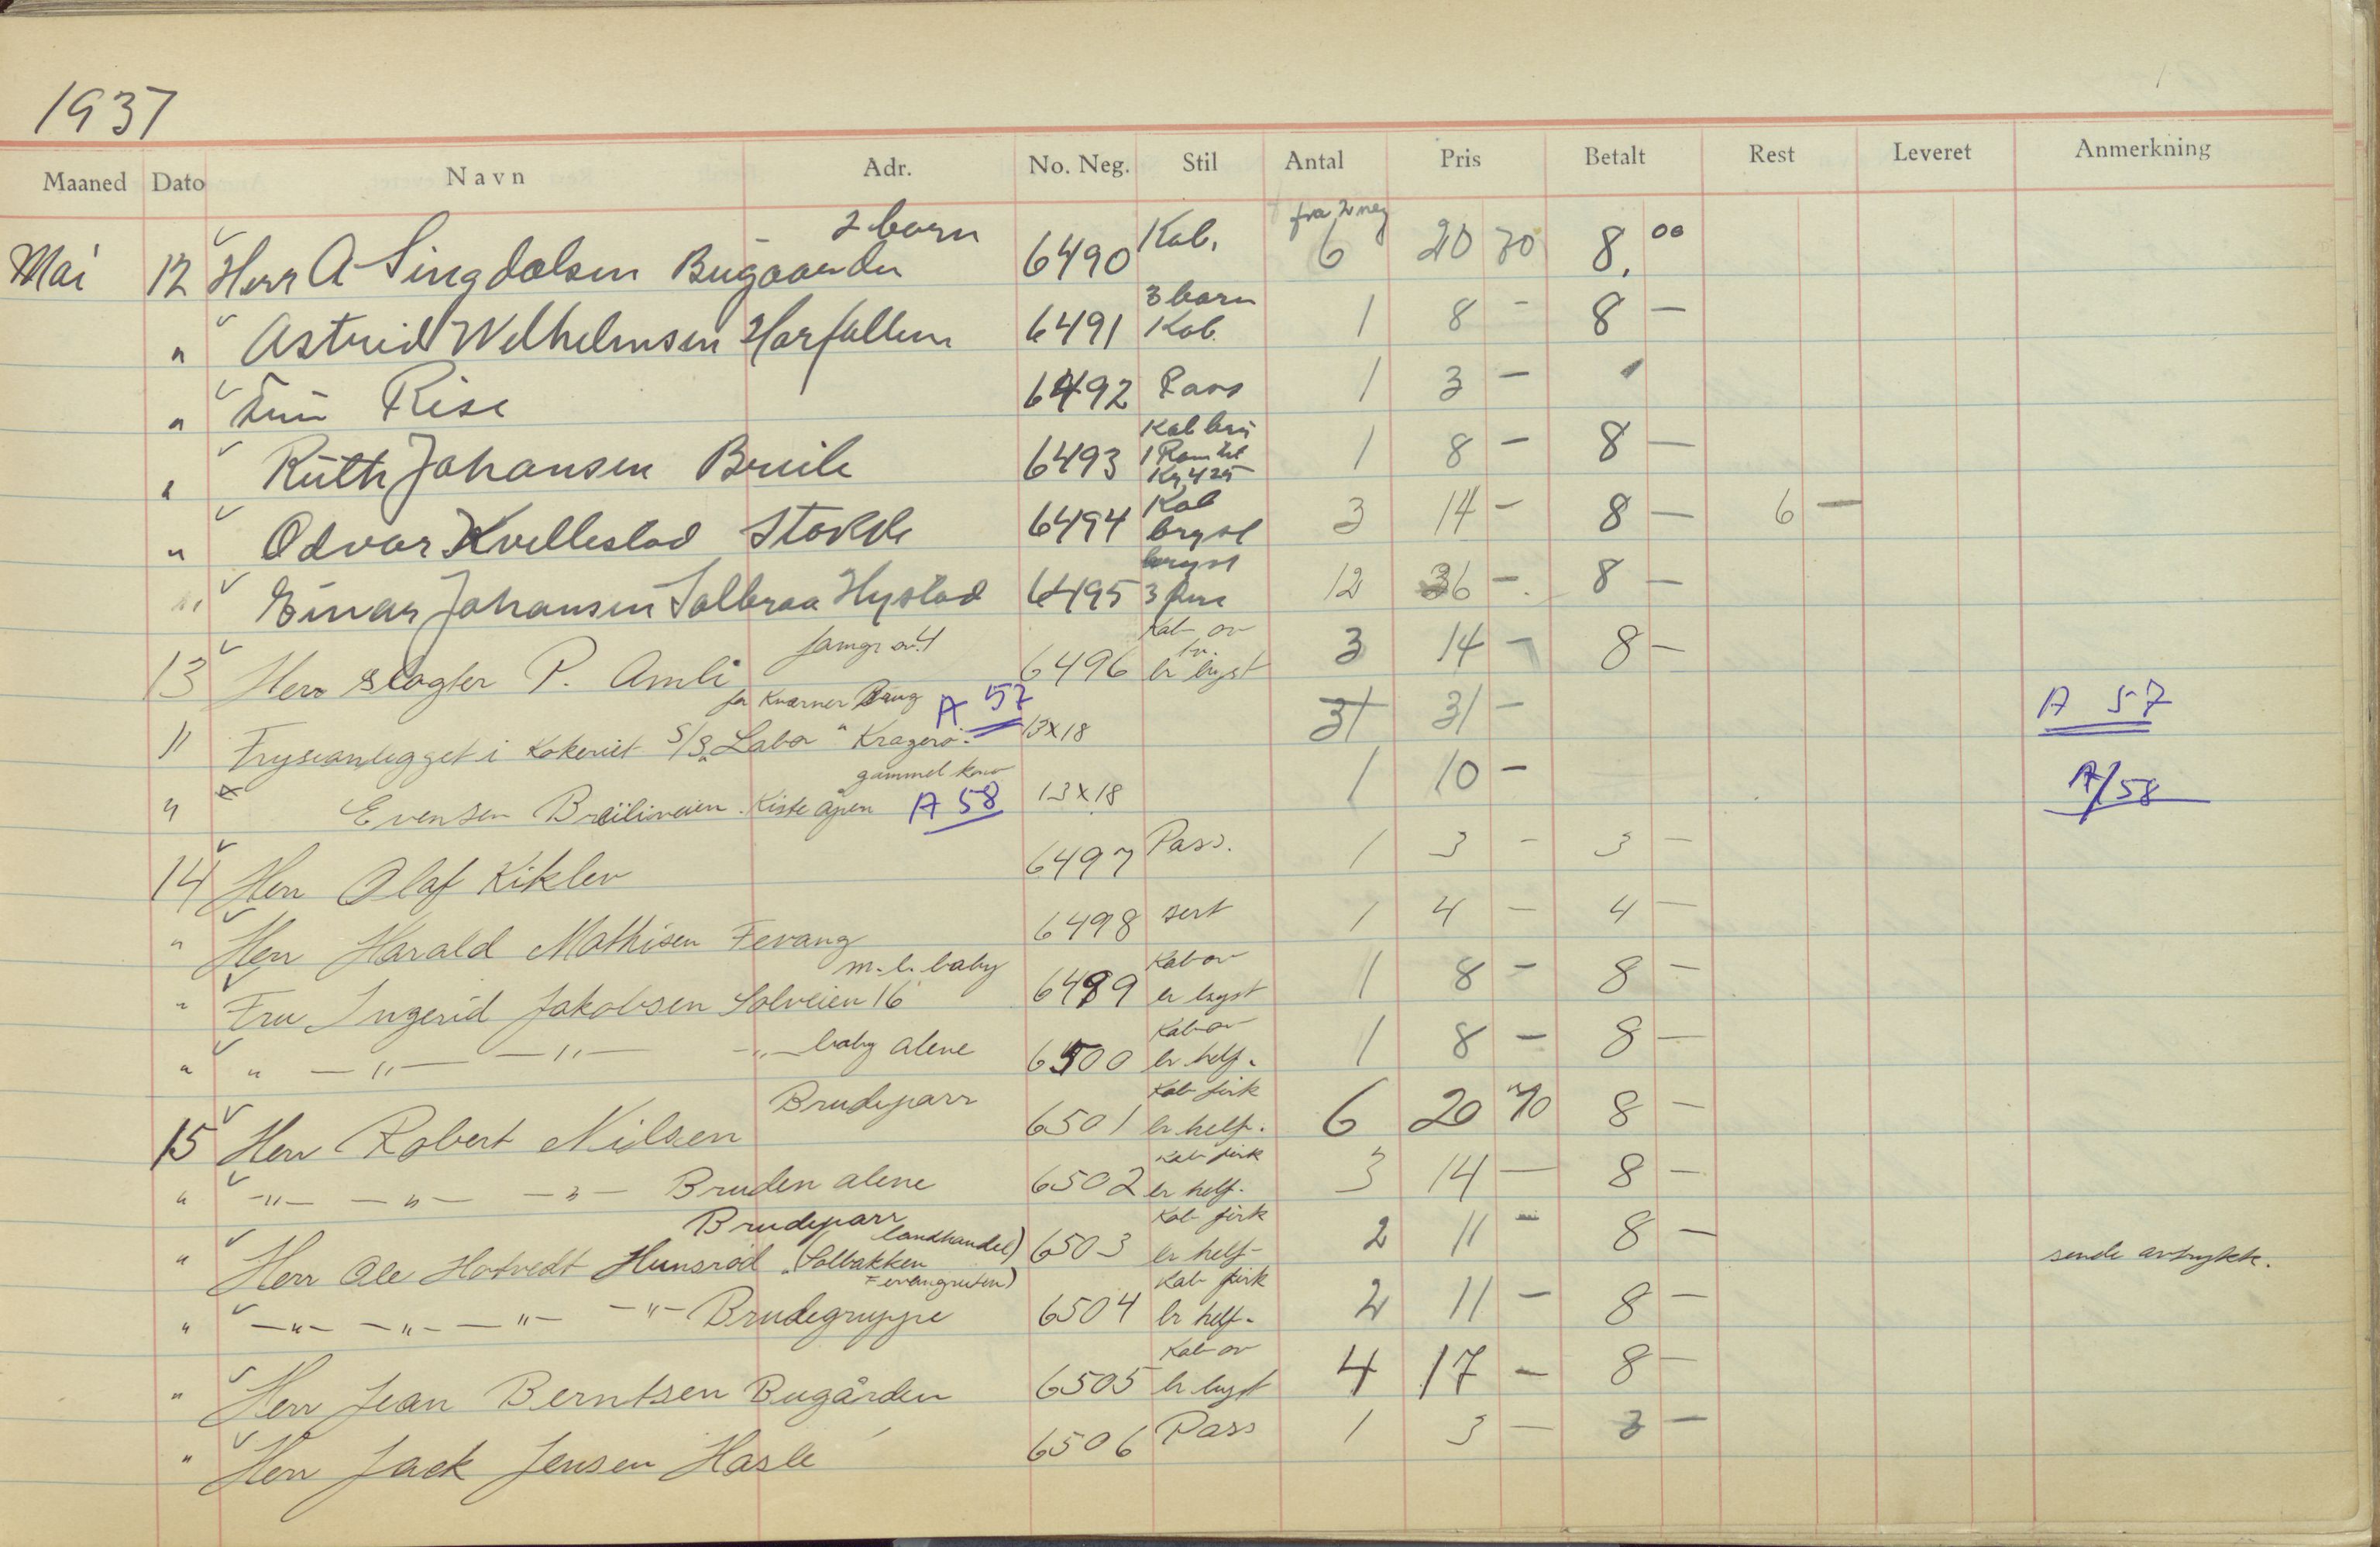 1937
Maaned Dato Navn Adr. No. Neg. Stil Antal Pris Betalt Rest Leveret Anmerkning
2 barn fra 2 neg
Mai 12 Herr A Singdalsen Bugaarden 6490 Kab. 6 20 70 8,00
3 barn
" Astrid Wilhelmsen 6491 Kab. 1 8 - 8 -
" Rise 6492 Pass 1 3 -
Kab
" Ruth Johansen 6493 1 8 - 8 -
Kr 4 25
Kab
" Odvar Kvellestad Stokke 6494 bryst 3 14 - 8 - 6 -
bryst
" Einar Johansen Solbraa Hystad 6495 3 12 36 - 8 -
Kab ov
13 Herr slagter P. Amli 6496 er bryst 3 14 - 8 -
for Kværner Brug A 57
" Fryseanlegget i kokeriet S/S "Labor" Kragerö 13x18 31 31 - A 57
gammel kone
" Evensen kiste åpen A 58 13x18 1 10 - A/58
14 Herr Olaf Kiklev 6497 Pass. 1 3 - 3 -
" Herr Harald Mathisen Fevang 6498 sert 1 4 - 4 -
m. l. baby Kab ov
" Fru Ingerid Jakobsen Solveien 16 6499 er bryst 1 8 - 8 -
Kab ov
" " -"- -"- -"- baby alene 6500 er helf. 1 8 - 8 -
Brudeparr Kab firk
15 Herr Robert Nilsen 6501 er helf. 6 20 70 8 -
Kab firk
" -"- -"- -"- Bruden alene 6502 er helf. 3 14 - 8 -
Brudeparr landhandel) Kab firk
" Herr Ole Hotvedt Hunsrød (Solbakken 6503 er helf- 2 11 - 8 - sende avtrykk.
Fevangruten) Kab firk
" -"- -"- -"- -"- Brudegruppe 6504 er helf- 2 11 - 8 -
Kab ov
" Herr Jean Berntsen Bugården 6505 er bryst 4 17 - 8 -
" Herr Jack Jensen Hasle 6506 Pass 1 3 - 3 -